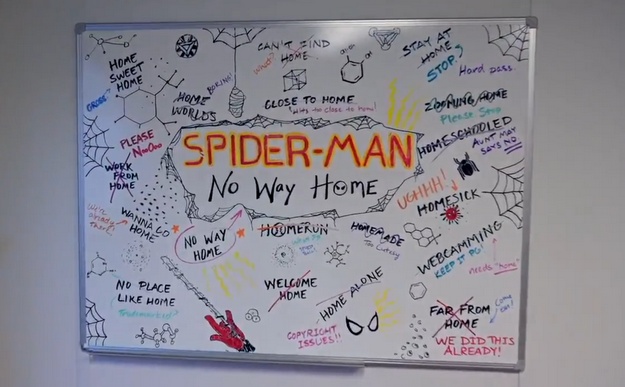 HOME
SWEET
HOME
CAN'T FIND
HOME
What?
STAY AT
HOME
STOP?
Hard pass
BORING!
HOME
WORLDS
CLOSE TO HOME
ZOOMING HOME
Please Stop
PLEASE
NooOoo
HOMESCHOOLED
AUNT MAY
SAYS NO
SPIDER-MAN
No Way Home
WORK
FROM
HOME
UGHHH!
HOMESICK
WANNA GO
HOME
NO WAY
HOME
HOMERUN
HOMEMADE
WEBCAMMING
KEEP IT PG!
needs "home"
NO PLACE
LIKE HOME
Trademarked
WELCOME
HOME
HOME ALONE
COPYRIGHT
ISSUES!!
FAR FROM
HOME
WE DID THIS
ALREADY!